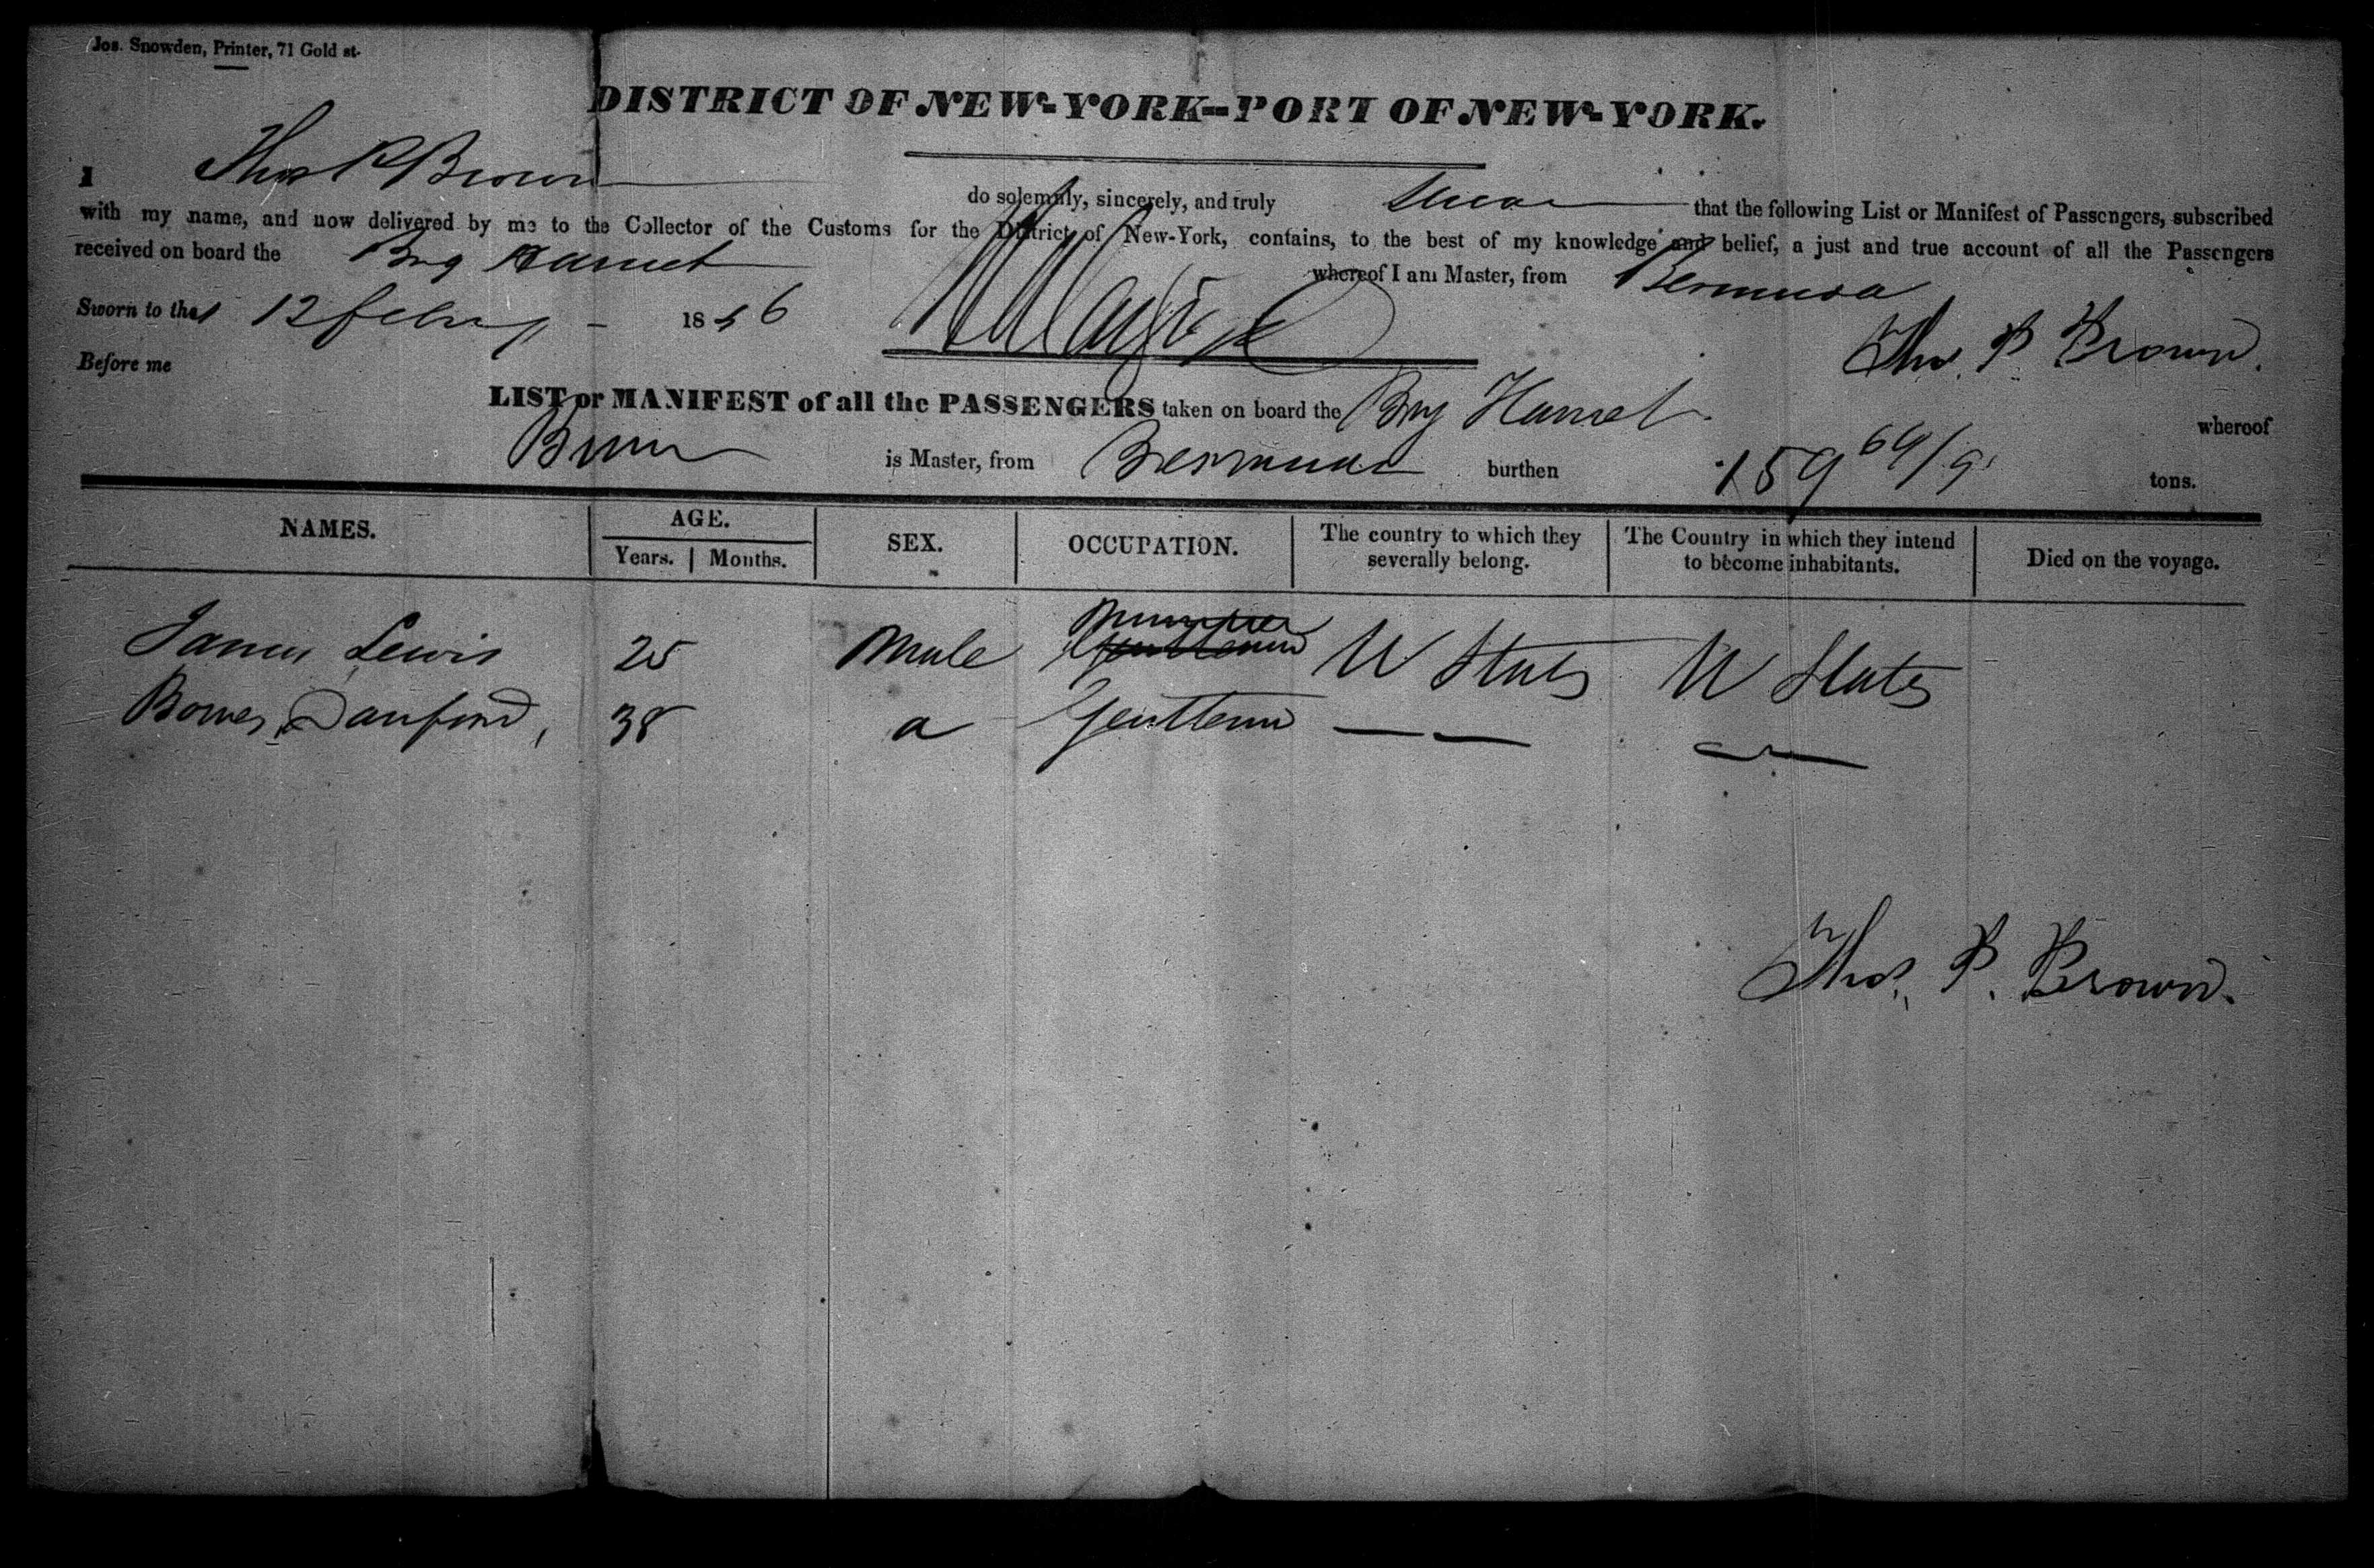 Jos. Snowden, Printer, 71 Gold st.
DISTRICT OF NEW-YORK--PORT OF NEW-YORK.
I Thos P Brown do solemnly, sincerely, and truly swear that the following List or Manifest of Passengers, subscribed
with my name, and now delivered by me to the Collector of the Customs for the District of New-York, contains, to the best of my knowledge and belief, a just and true account of all the Passengers
received on board the Brig Harriet whereof I am Master, from Bermuda
Sworn to the 12 feby 1856
Thos. P. Brown.
Before me
LIST or MANIFEST of all the PASSENGERS taken on board the Brig Harriet whereof
Brown is Master, from Bermuda burthen 159 64/9 tons.
NAMES. AGE. SEX. OCCUPATION. The country to which they severally belong. The Country in which they intend to become inhabitants. Died on the voyage.
Years. Months.
James Lewis 25 Male Gentleman U States U States
Bowes Sanford, 38 a Gentleman — — —
Thos. P. Brown.